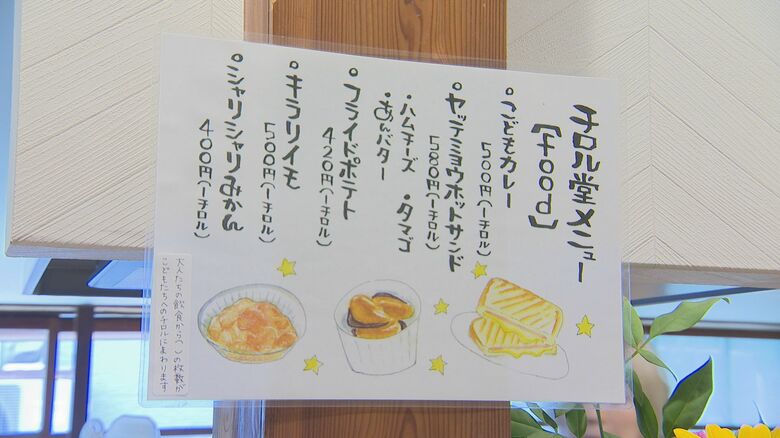 チロル堂メニュー
【food】
。こどもカレー
500円(一チロル)
。ヤッテミヨウホットサンド
580円(一チロル)
・ハムチーズ ・タマゴ
・あんバター
。フライドポテト
420円(一チロル)
。キラリイモ
500円(一チロル)
。シャリシャリみかん
400円(一チロル)
大人たちの飲食から( )の枚数が
こどもたちへのチロルにまわります